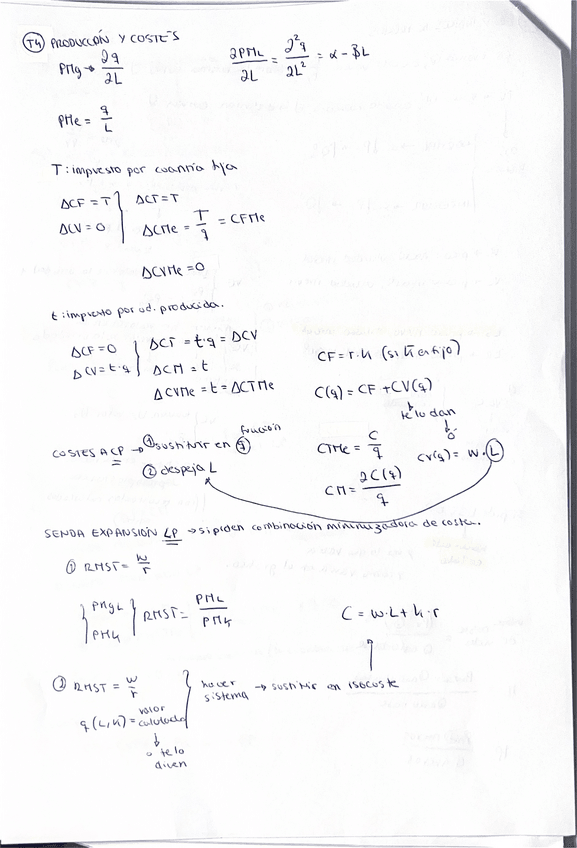 T4 PRODUCCIÓN Y COSTES
PMg → ∂q/∂L
∂PML/∂L = ∂²q/∂L² = α - βL
PMe = q/L
T: impuesto por cuantía fija
ΔCF = T } ΔCT = T
ΔCV = 0 } ΔCMe = T/q = CFMe
ΔCVMe = 0
t: impuesto por ud. producida.
ΔCF = 0 } ΔCT = t·q = ΔCV
ΔCV = t·q } ΔCM = t
ΔCVMe = t = ΔCTMe
CF = r·k (si k es fijo)
C(q) = CF + CV(q)
te lo dan
ó
CV(q) = w·L
CTMe = C/q
CM = ∂C(q)/q
COSTES A CP → ① sustituir en función q
② despeja L
SENDA EXPANSIÓN LP → si piden combinación minimizadora de costes.
① RMST = w/r
PMgL
PMk
} RMST = PML/PMk
C = w·L + k·r
② RMST = w/r
q(L,K) = valor calculado
o te lo dicen
} hacer sistema → sustituir en isocoste